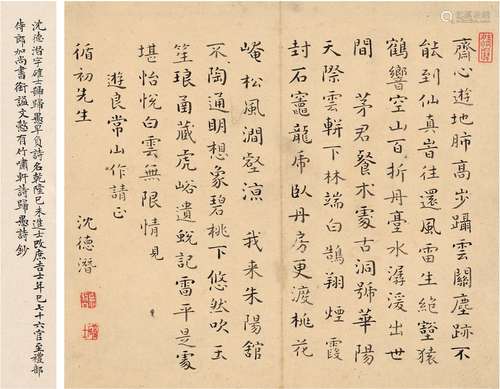 齊心遊地肺高步躡雲關塵跡不
能到仙真昔往還風雷生絕壑猿
鶴響空山百折丹臺水潺湲出世
間 茅君餐朮處古洞號華陽
天際雲軿下林端白鵠翔煙霞
封石竈龍虎臥丹房更渡桃花
崦松風澗壑涼 我来朱陽舘
不見陶通明想象碧桃下悠然吹玉
笙琅函藏虎峪遺蛻記雷平是處
堪怡悅白雲無限情
遊良常山作請正
循初先生
沈德潛
沈德潛字確士號歸愚早負詩名乾隆己未進士改庶吉士年已七十六官至禮部
侍郎加尚書銜謚文慤有竹嘯軒詩歸愚詩鈔